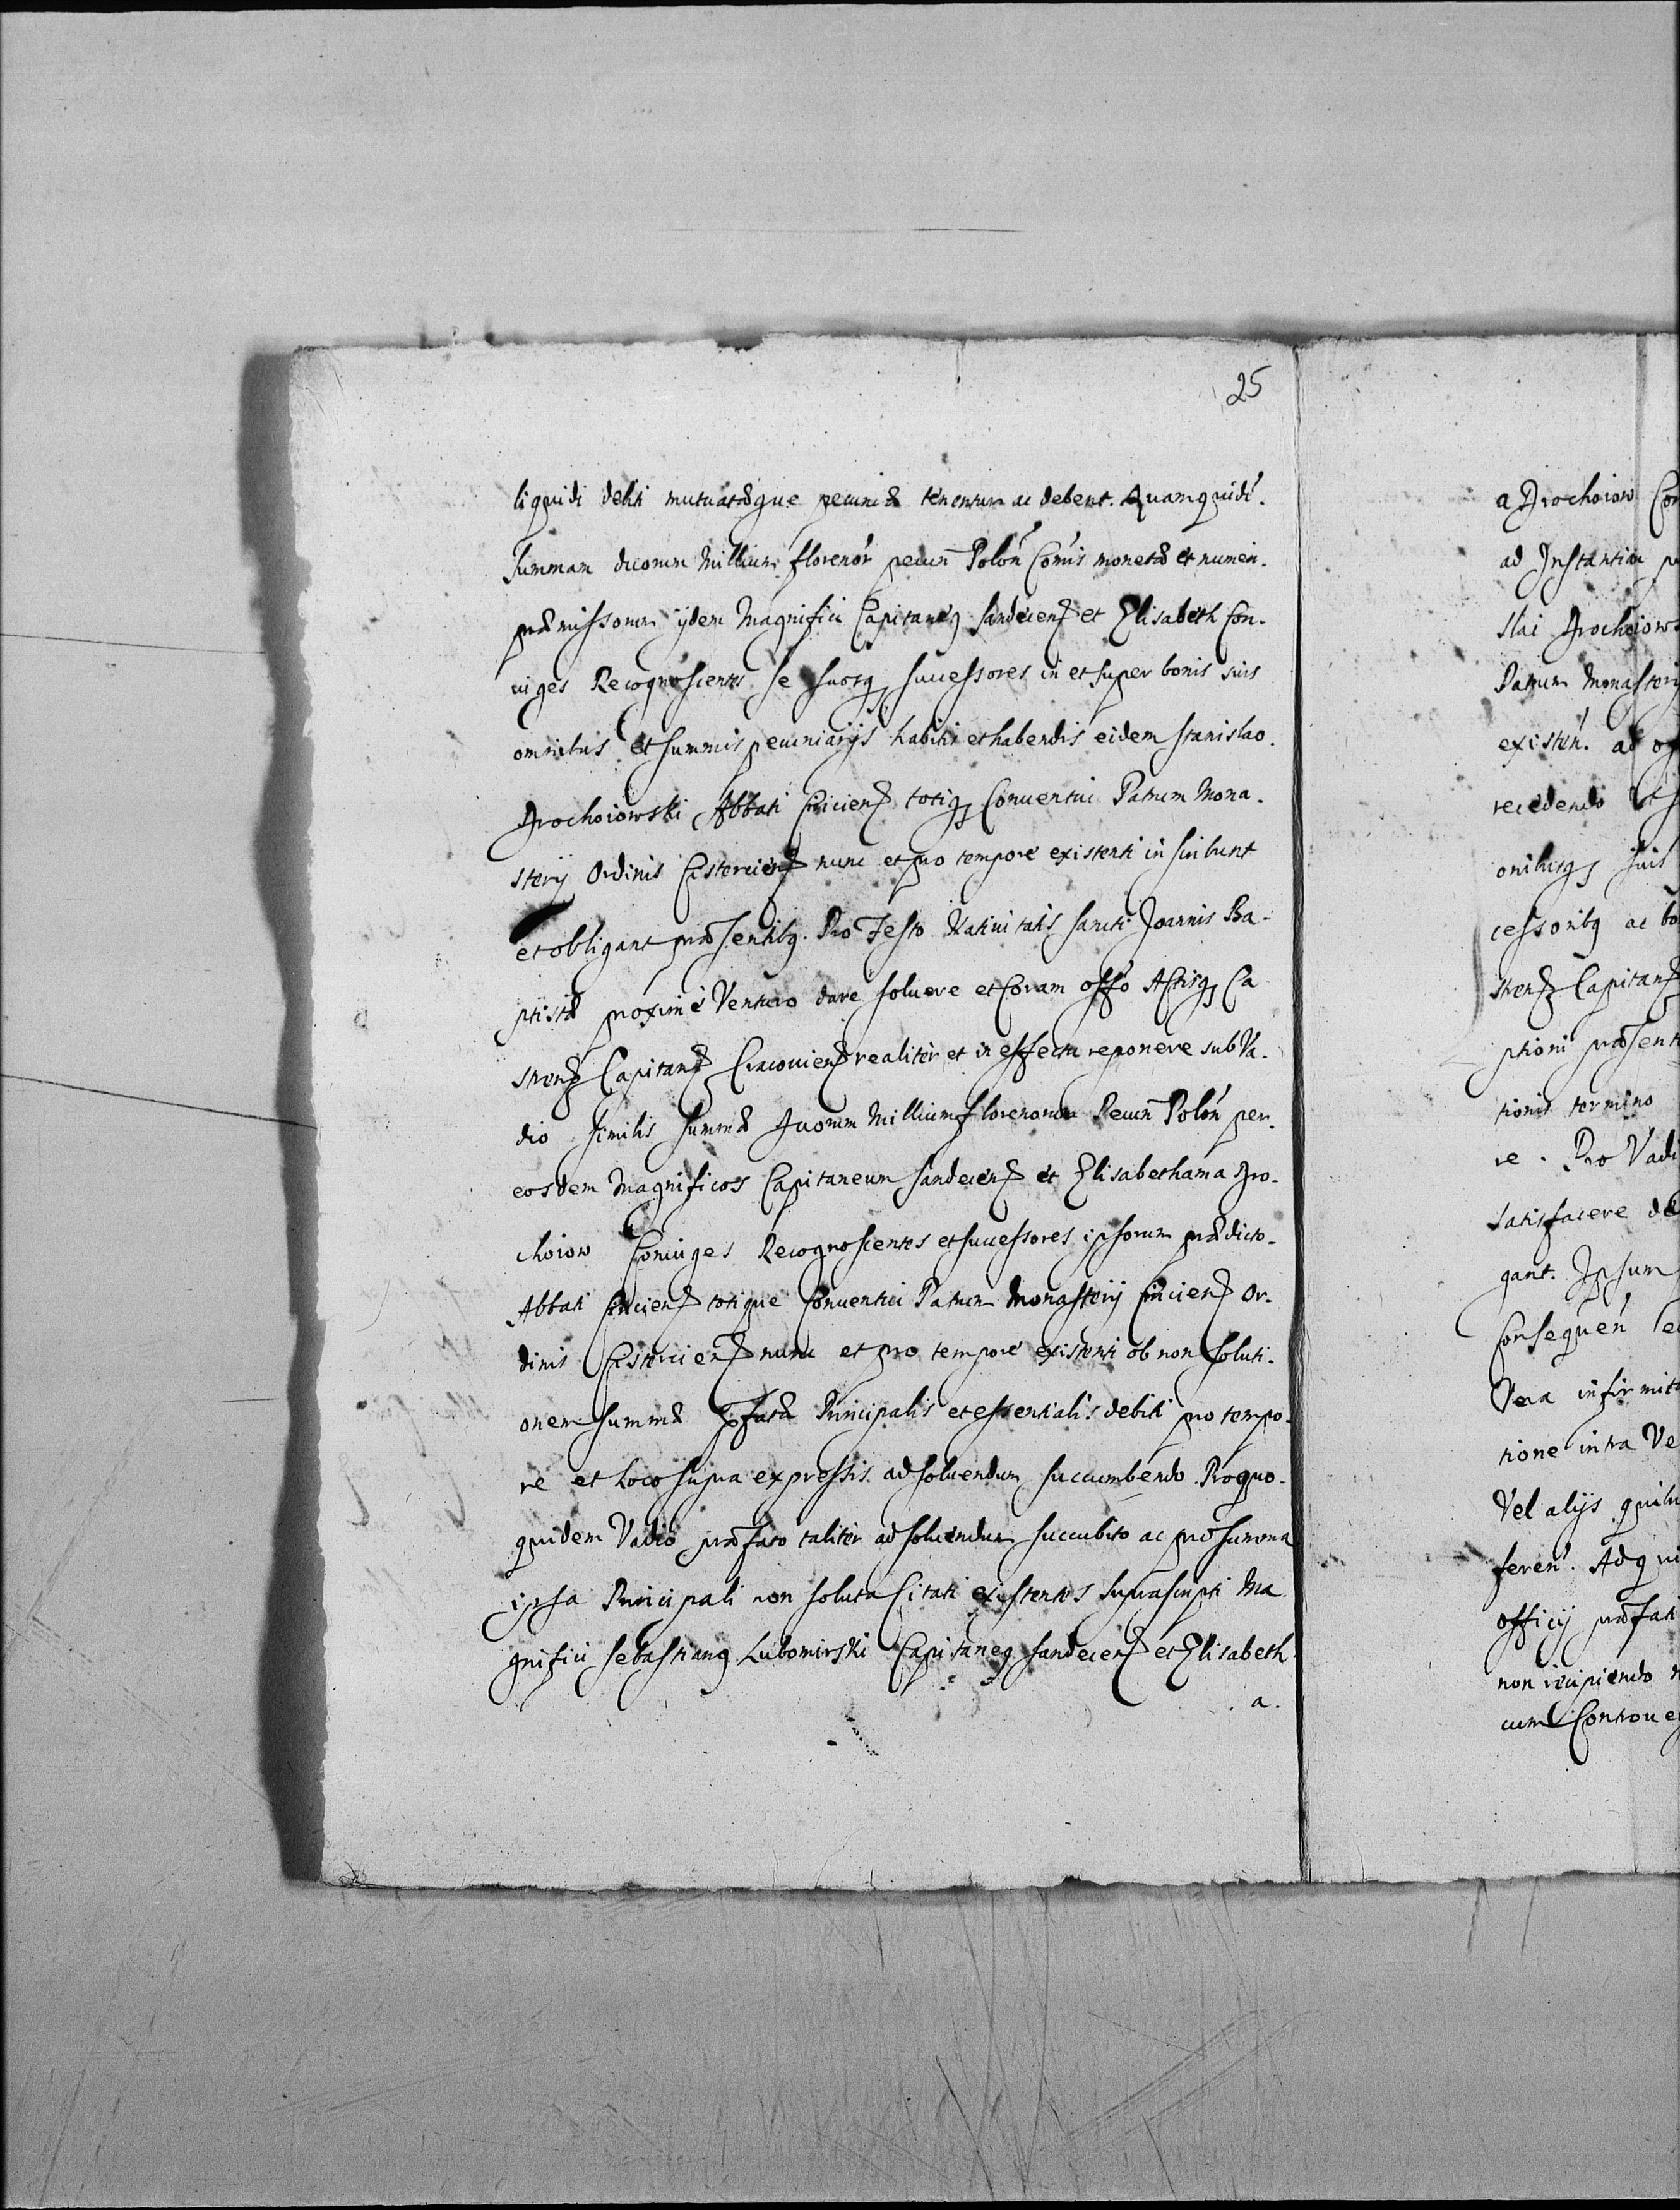 25
liquidi debiti mutuatæque pecuniæ tenentur ac debent. Quamquidē.
Summam duorum Millium florenor̄ pecun̄ Polon̄ Com̄is monetæ et numeri.
præmissorum ijdem Magnifici Capitaneq̨ Sandecenꝭ et Elisabeth Con-
iuges Recognoscentes se suosq̨ successores in et super bonis suis
omnibus et summis pecuniarijs habitis et habendis eidem Stanislao.
Drochoiowski Abbati Ciricienꝭ totiq̨ Conuentui Patrum Mona-
sterij Ordinis Cistercienꝭ nunc et pro tempore existenti inscribunt
et obligant præsentibq̨. Pro Festo Natiuitatis Sancti Joannis Ba-
ptistæ proximè Venturo dare soluere et Coram offō Actisq̨ Ca
strenꝭ Capitanꝭ Cracouienꝭ realiter et in effectu reponere sub Va-
dio similis summæ duorum Millium florenorum Pecun̄ Polon̄ per.
eosdem Magnificos Capitaneum Sandecenꝭ et Elisabetham a Dro-
choiow Coniuges Recognoscentes et successores ipsorum prædicto-
Abbati Ciricienꝭ totique Conuentui Patrum Monasterij Ciricienꝭ Or-
dinis Cistercienꝭ nunc et pro tempore existenti ob non soluti-
onem summæ p̄fatæ Principalis et essentialis debiti pro tempo-
re et loco supra expressis ad soluendum succumbendo. Pro quo-
quidem Vadio præfato taliter ad soluendum succubito ac pro summa
ipsa Principali non soluta Citati existentes suprascripti Ma
gnifici Sebastianq̨ Lubomirski Capitaneq̨ Sandecenꝭ et Elisabeth
a.
a Drochoiow Con
ad Instantiam
slai Drochoiows
Patrum Monasterij
existen̄. ab
recedendo et
onibusq̨ suis
cessoribq̨ ac bo
strenꝭ Capitanꝭ
ptioni præsenti
tionis termino
re. Pro Vadi
satisfacere de
gant. Ipsum
Consequen̄
Vera infirmit
tione intra Ve
Vel alijs quibu
feren̄. Adqui
officij præfati
non recipiendo
cum Controue